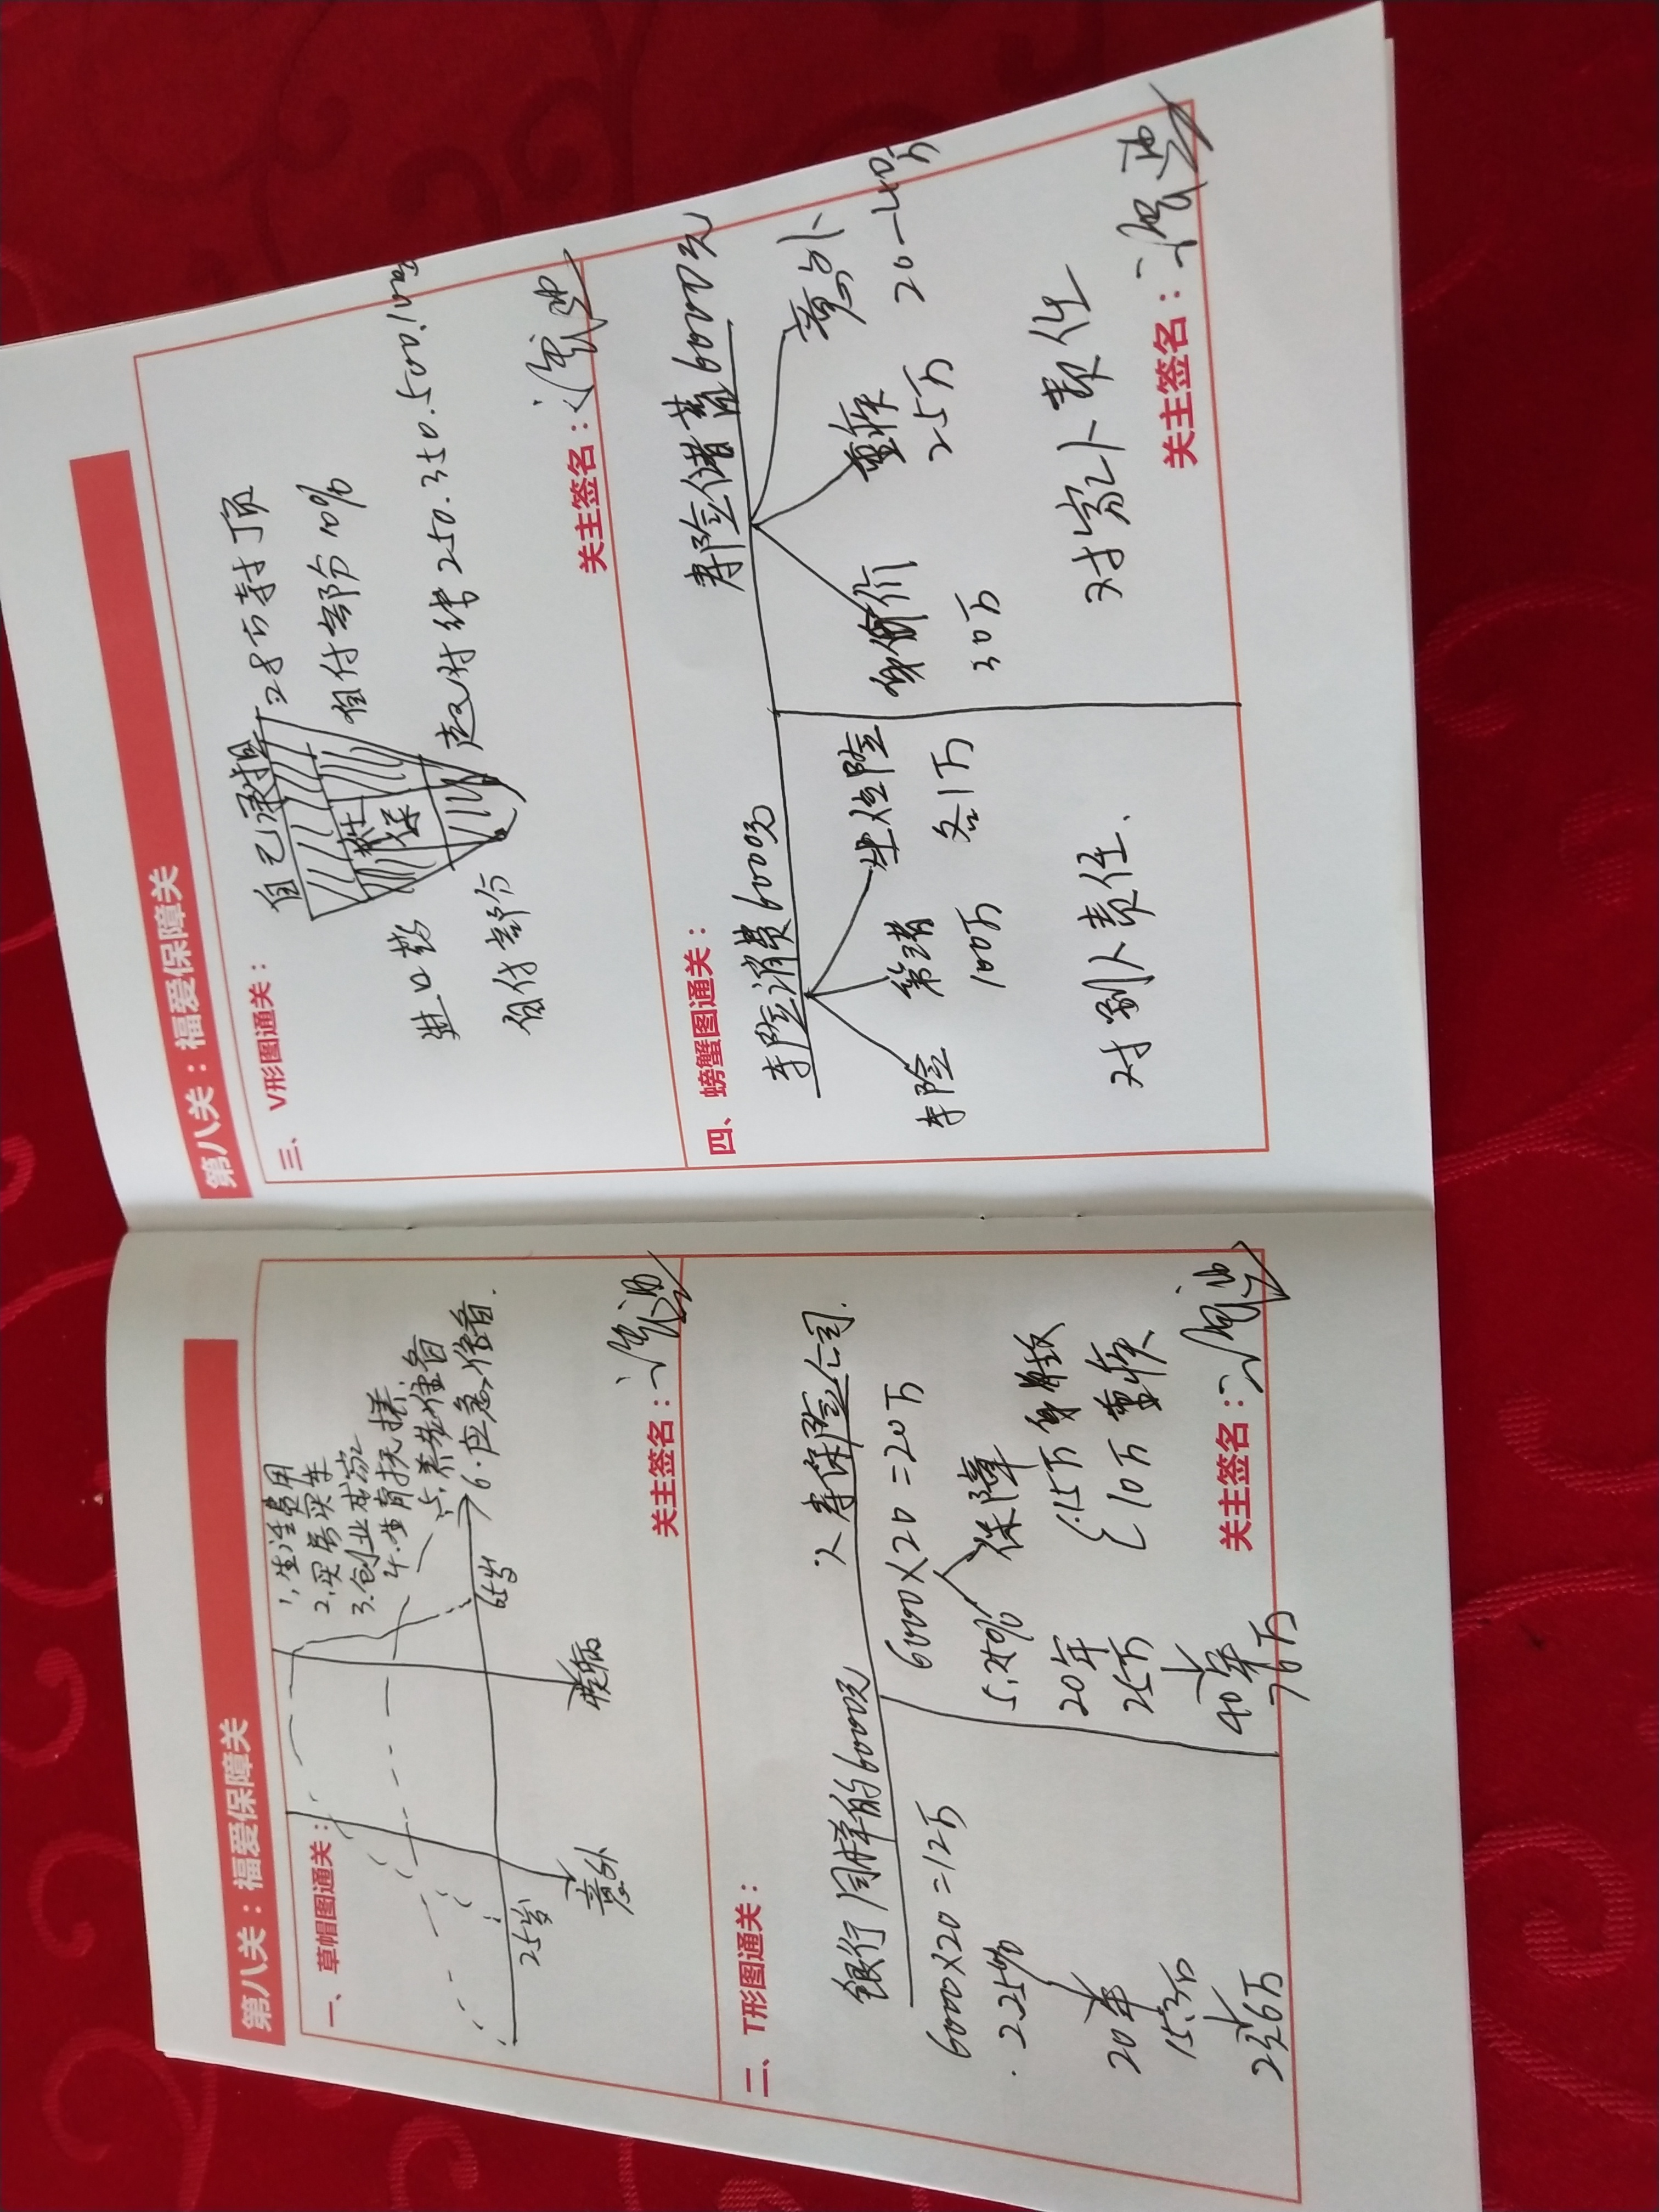 第八关：福爱保障关
一、草帽图通关：
1.生活费用
2.买房买车
3.创业成家
4.生育抚养
5.养老准备
6.应急准备.
25岁
65岁
意外
疾病
关主签名：
二、T形图通关：
银行 同样的6000元 人寿保险公司.
6000×20=12万
2.25%
20年
15.3万
6000×20=20万
5.25%
保障
20年
25万
40年
76万
15万身故
10万重疾
关主签名：
第八关：福爱保障关
三、V形图通关：
自己承担
28万封顶
自付部分10%
社保
进口药
自付部分
起付线 250.350.500.
关主签名：
四、螃蟹图通关：
车险消费6000元
寿险储蓄6000元
车险
第三者
100万
坐位险
各1万
身价
30万
重疾
25万
意外
20-40万
对别人责任.
对家人责任
关主签名：